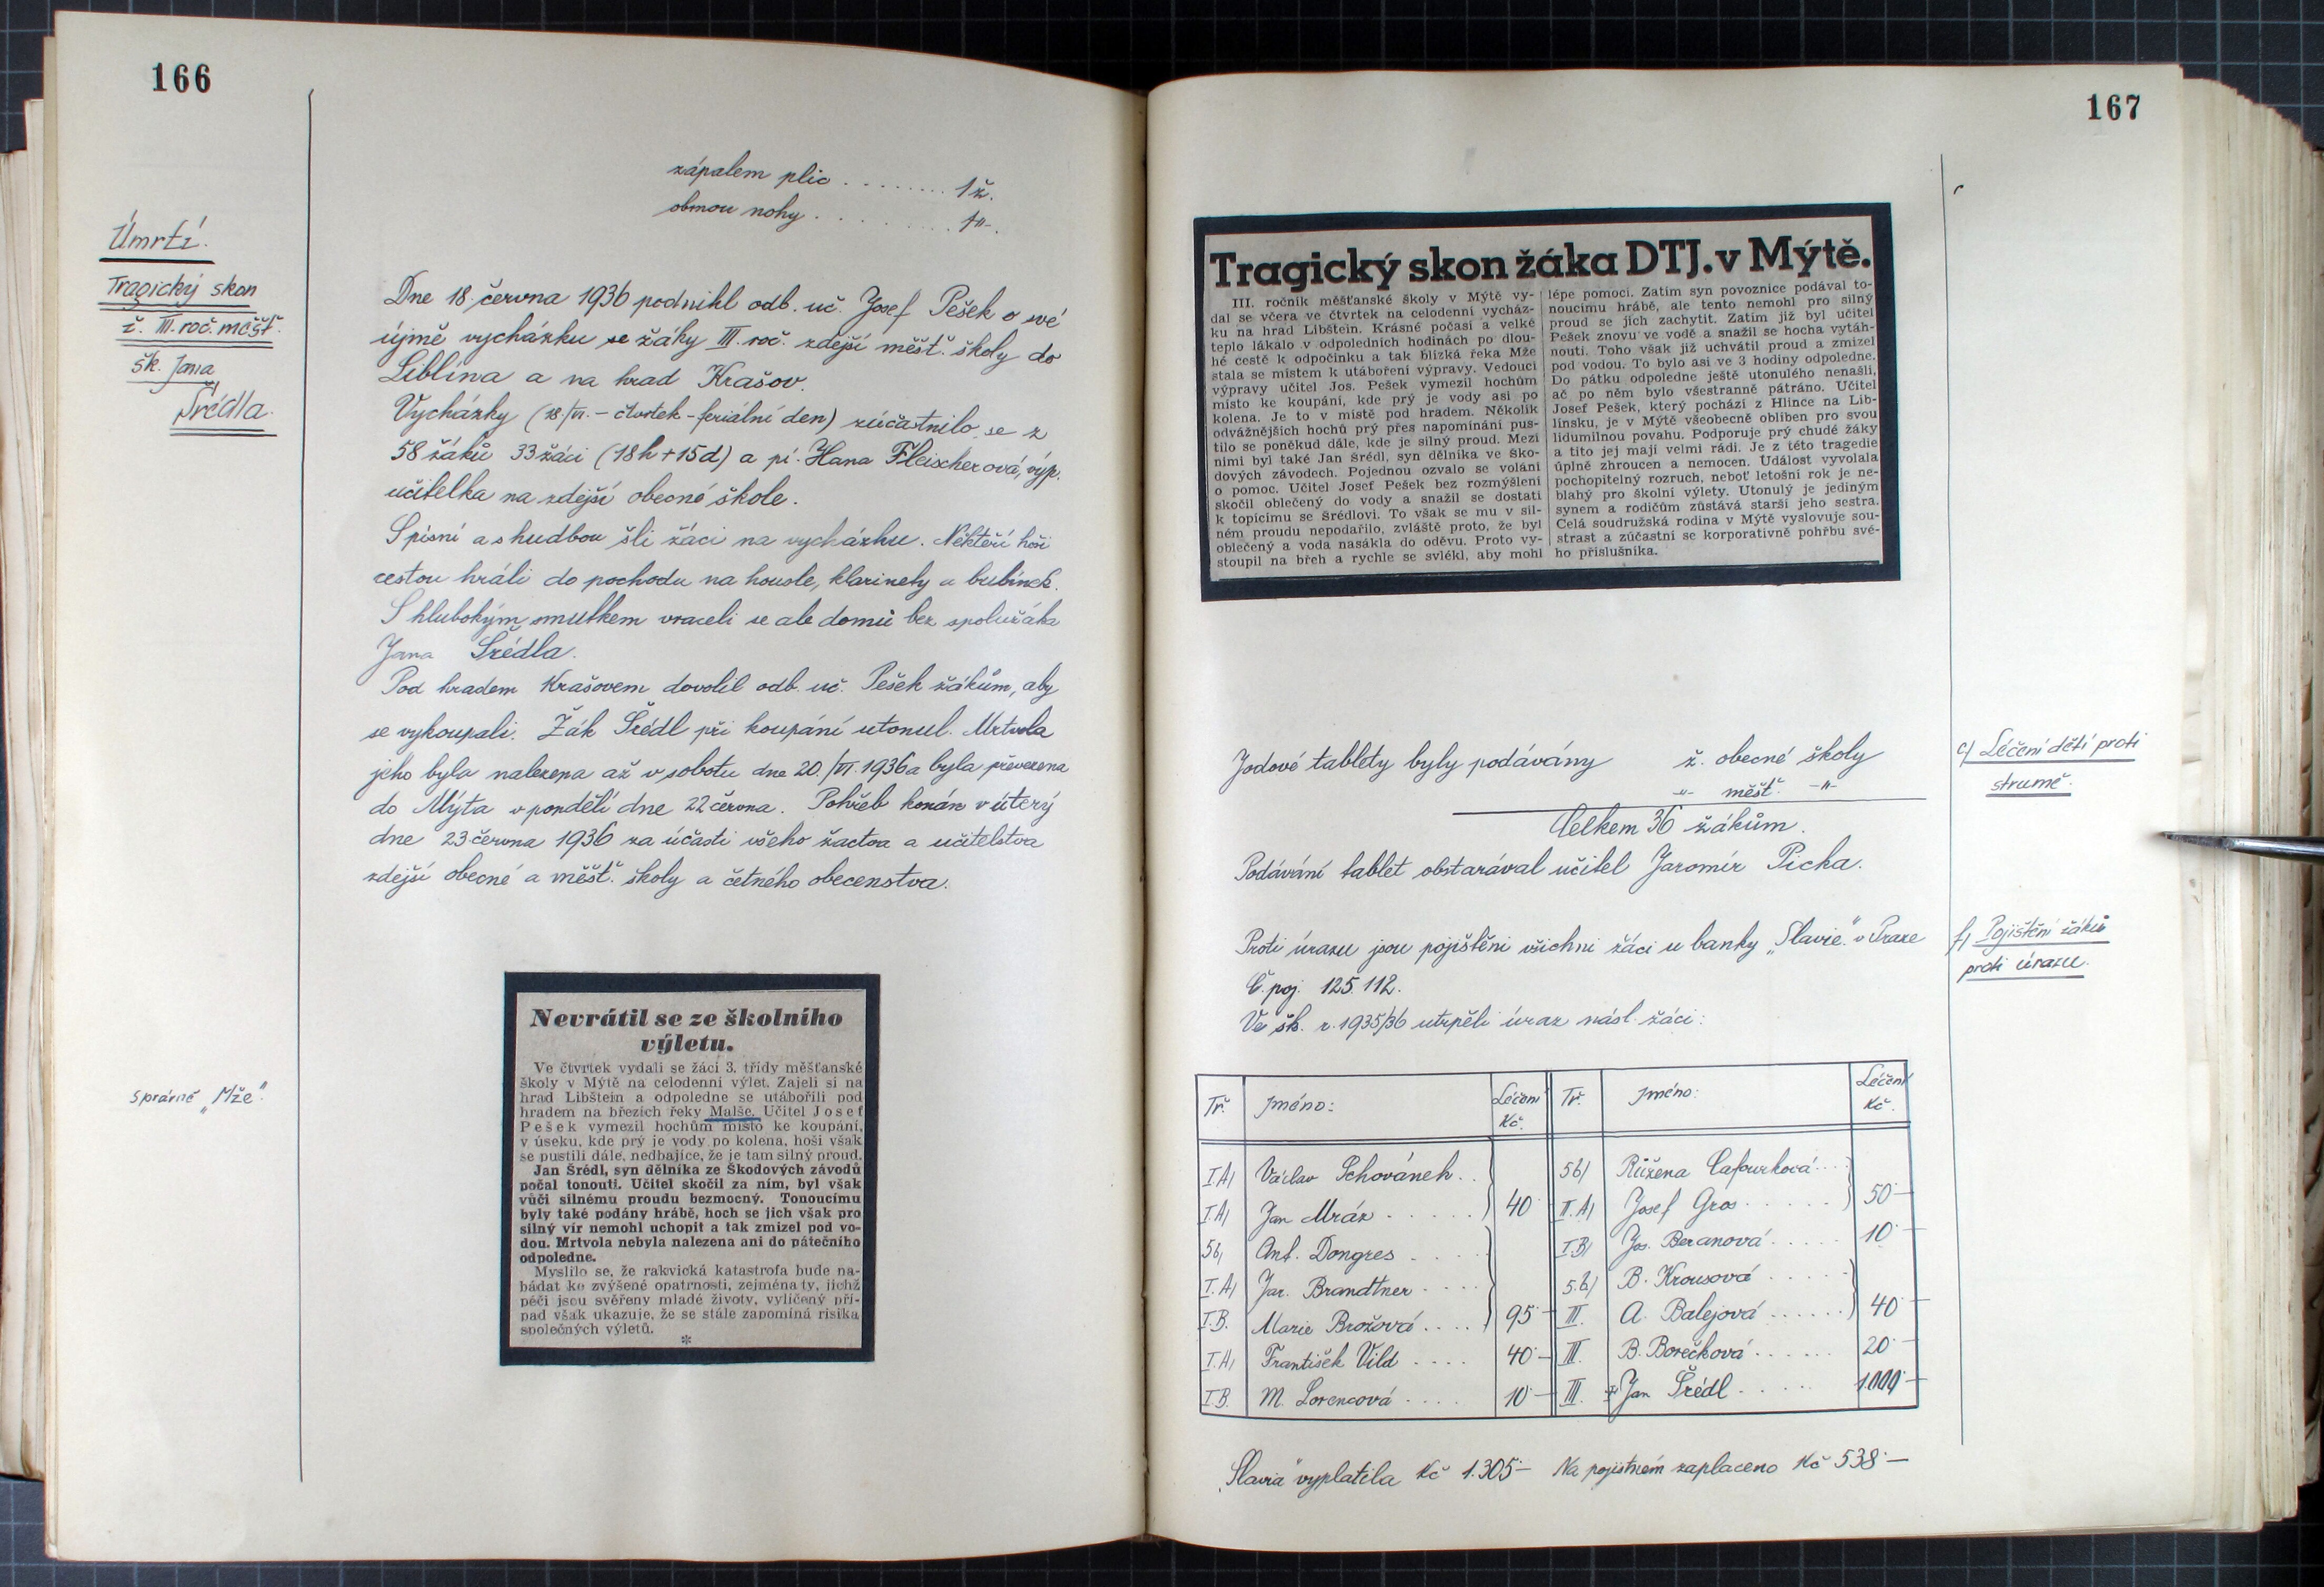 166
zápalem plic ......... 1ž.
obrnou nohy ......... 1〃.
Úmrtí.
Tragický skon
ž. III. roč. měšť.
šk. Jana
Šrédla.
Dne 18. června 1936 podnikl odb. uč. Josef Pešek o své
újmě vycházku se žáky III. roč. zdejší měšť. školy do
Liblína a na hrad Krašov.
Vycházky (18./VI. – čtvrtek – feriální den) zúčatnilo se z
58 žáků 33 žáci (18h + 15d) a pí. Hana Fleischerová, výp.
učitelka na zdejší obecné škole.
S písní a s hudbou šli žáci na vycházku. Někteří hoši
cestou hráli do pochodu na housle, klarinety a bubínek.
S hlubokým smutkem vraceli se ale domů bez spolužáka
Jana Šrédla.
Pod hradem Krašovem dovolil odb. uč. Pešek žákům, aby
se vykoupali. Žák Šrédl při koupání utonul. Mrtvola
jeho byla nalezena až v sobotu dne 20./VI. 1936 a byla převezena
do Mýta v pondělí dne 22 června. Pohřeb konán v úterý
dne 23 června 1936 za účasti všeho žactva a učitelstva
zdejší obecné a měšť. školy a četného obecenstva.
Nevrátil se ze školního
výletu.
Ve čtvrtek vydali se žáci 3. třídy měšťanské
školy v Mýtě na celodenní výlet. Zajeli si na
hrad Libštein a odpoledne se utábořili pod
hradem na březích řeky Malše. Učitel Josef
Pešek vymezil hochům místo ke koupání,
v úseku, kde prý je vody po kolena, hoši však
se pustili dále, nedbajíce, že je tam silný proud.
Jan Šrédl, syn dělníka ze Škodových závodů
počal tonouti. Učitel skočil za ním, byl však
vůči silnému proudu bezmocný. Tonoucímu
byly také podány hrábě, hoch se jich však pro
silný vír nemohl uchopit a tak zmizel pod vo-
dou. Mrtvola nebyla nalezena ani do pátečního
odpoledne.
Myslilo se, že rakvická katastrofa bude na-
bádat ke zvýšené opatrnosti, zejména ty, jichž
péči jsou svěřeny mladé životy, vylíčený pří-
pad však ukazuje, že se stále zapomíná risika
společných výletů.
*
Správně „Mže“.
167
Tragický skon žáka DTJ. v Mýtě.
III. ročník měšťanské školy v Mýtě vy-
dal se včera ve čtvrtek na celodenní vycház-
ku na hrad Libštein. Krásné počasí a velké
teplo lákalo v odpoledních hodinách po dlou-
hé cestě k odpočinku a tak blízká řeka Mže
stala se místem k utáboření výpravy. Vedoucí
výpravy učitel Jos. Pešek vymezil hochům
místo ke koupání, kde prý je vody asi po
kolena. Je to v místě pod hradem. Několik
odvážnějších hochů prý přes napomínání pus-
tilo se poněkud dále, kde je silný proud. Mezi
nimi byl také Jan Šrédl, syn dělníka ve Ško-
dových závodech. Pojednou ozvalo se volání
o pomoc. Učitel Josef Pešek bez rozmýšlení
skočil oblečený do vody a snažil se dostati
k topícímu se Šrédlovi. To však se mu v sil-
ném proudu nepodařilo, zvláště proto, že byl
oblečený a voda nasákla do oděvu. Proto vy-
stoupil na břeh a rychle se svlékl, aby mohl
lépe pomoci. Zatím syn povoznice podával to-
noucímu hrábě, ale tento nemohl pro silný
proud se jich zachytit. Zatím již byl učitel
Pešek znovu ve vodě a snažil se hocha vytáh-
nouti. Toho však již uchvátil proud a zmizel
pod vodou. To bylo asi ve 3 hodiny odpoledne.
Do pátku odpoledne ještě utonulého nenašli,
ač po něm bylo všestranně pátráno. Učitel
Josef Pešek, který pochází z Hlince na Lib-
línsku, je v Mýtě všeobecně oblíben pro svou
lidumilnou povahu. Podporuje prý chudé žáky
a tito jej mají velmi rádi. Je z této tragedie
úplně zhroucen a nemocen. Událost vyvolala
pochopitelný rozruch, neboť letošní rok je ne-
blahý pro školní výlety. Utonulý je jediným
synem a rodičům zůstává starší jeho sestra.
Celá soudružská rodina v Mýtě vyslovuje sou-
strast a zúčastní se korporativně pohřbu své-
ho příslušníka.
Jodové tablety byly podávány ž. obecné školy
〃 měšť. 〃
Celkem 36 žákům.
Podávání tablet obstarával učitel Jaromír Picka.
e) Léčení dětí proti
strumě.
Proti úrazu jsou pojištěni všichni žáci u banky „Slavie“ v Praze
Č. poj. 125.112.
Ve šk. r. 1935/36 utrpěli úraz násl. žáci:
f) Pojištění žáků
proti úrazu.
Tř. Jméno: Léčení Kč. Tř. Jméno: Léčení Kč.
I.A) Václav Schovánek.. 5b) Růžena Cafourková...
I.A) Jan Mráz ...... 40·– II.A) Josef Gros ...... 50·–
5b) Ant. Dongres .... I.B) Jos. Beranová ..... 10·–
I.A) Jar. Brandtner .... 5.b) B. Krousová ......
I.B. Marie Brožová .... 95·– III. A. Balejová ...... 40·–
I.A) František Vild .... 40·– III. B. Borečková ...... 20·–
I.B. M. Lorencová .... 10·– III. † Jan Šrédl ..... 1.000·–
„Slavia“ vyplatila Kč 1.305·– Na pojistném zaplaceno Kč 538·–